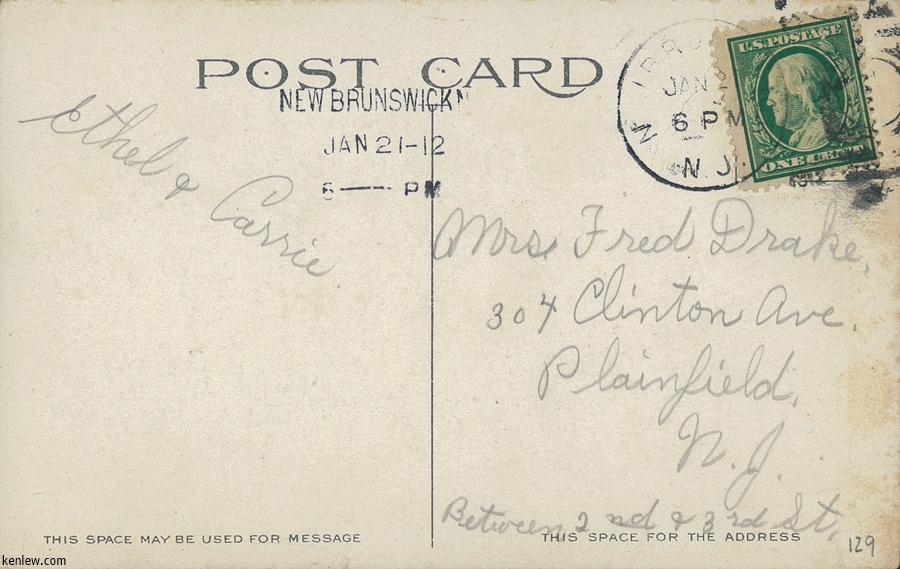 POST CARD
NEW BRUNSWICK N
JAN 21-12
6 — PM
Ethel & Carrie
JAN
6 PM
N.J.
1912
U.S. POSTAGE
ONE CENT
Mrs Fred Drake,
304 Clinton Ave.
Plainfield,
N. J.
Between 2nd & 3rd St,
THIS SPACE MAY BE USED FOR MESSAGE
THIS SPACE FOR THE ADDRESS
129
kenlew.com